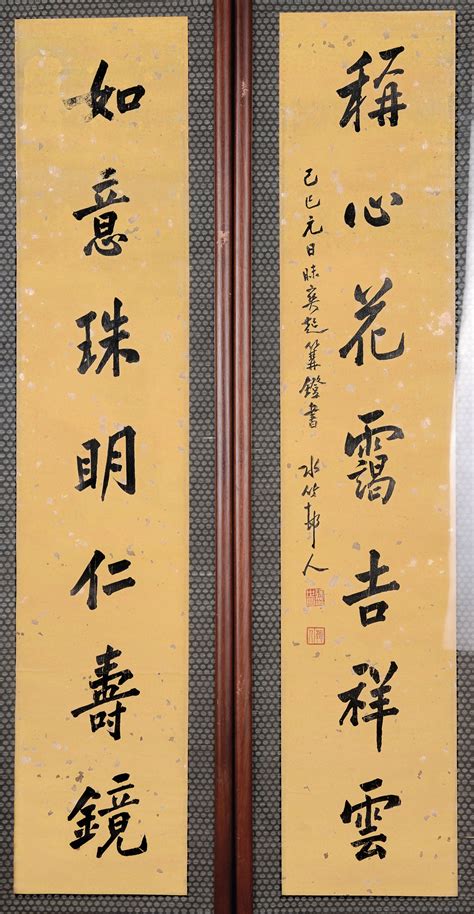 稱心花靄吉祥雲
己巳元日昧爽起篝鐙書 水竹邨人
如意珠明仁壽鏡